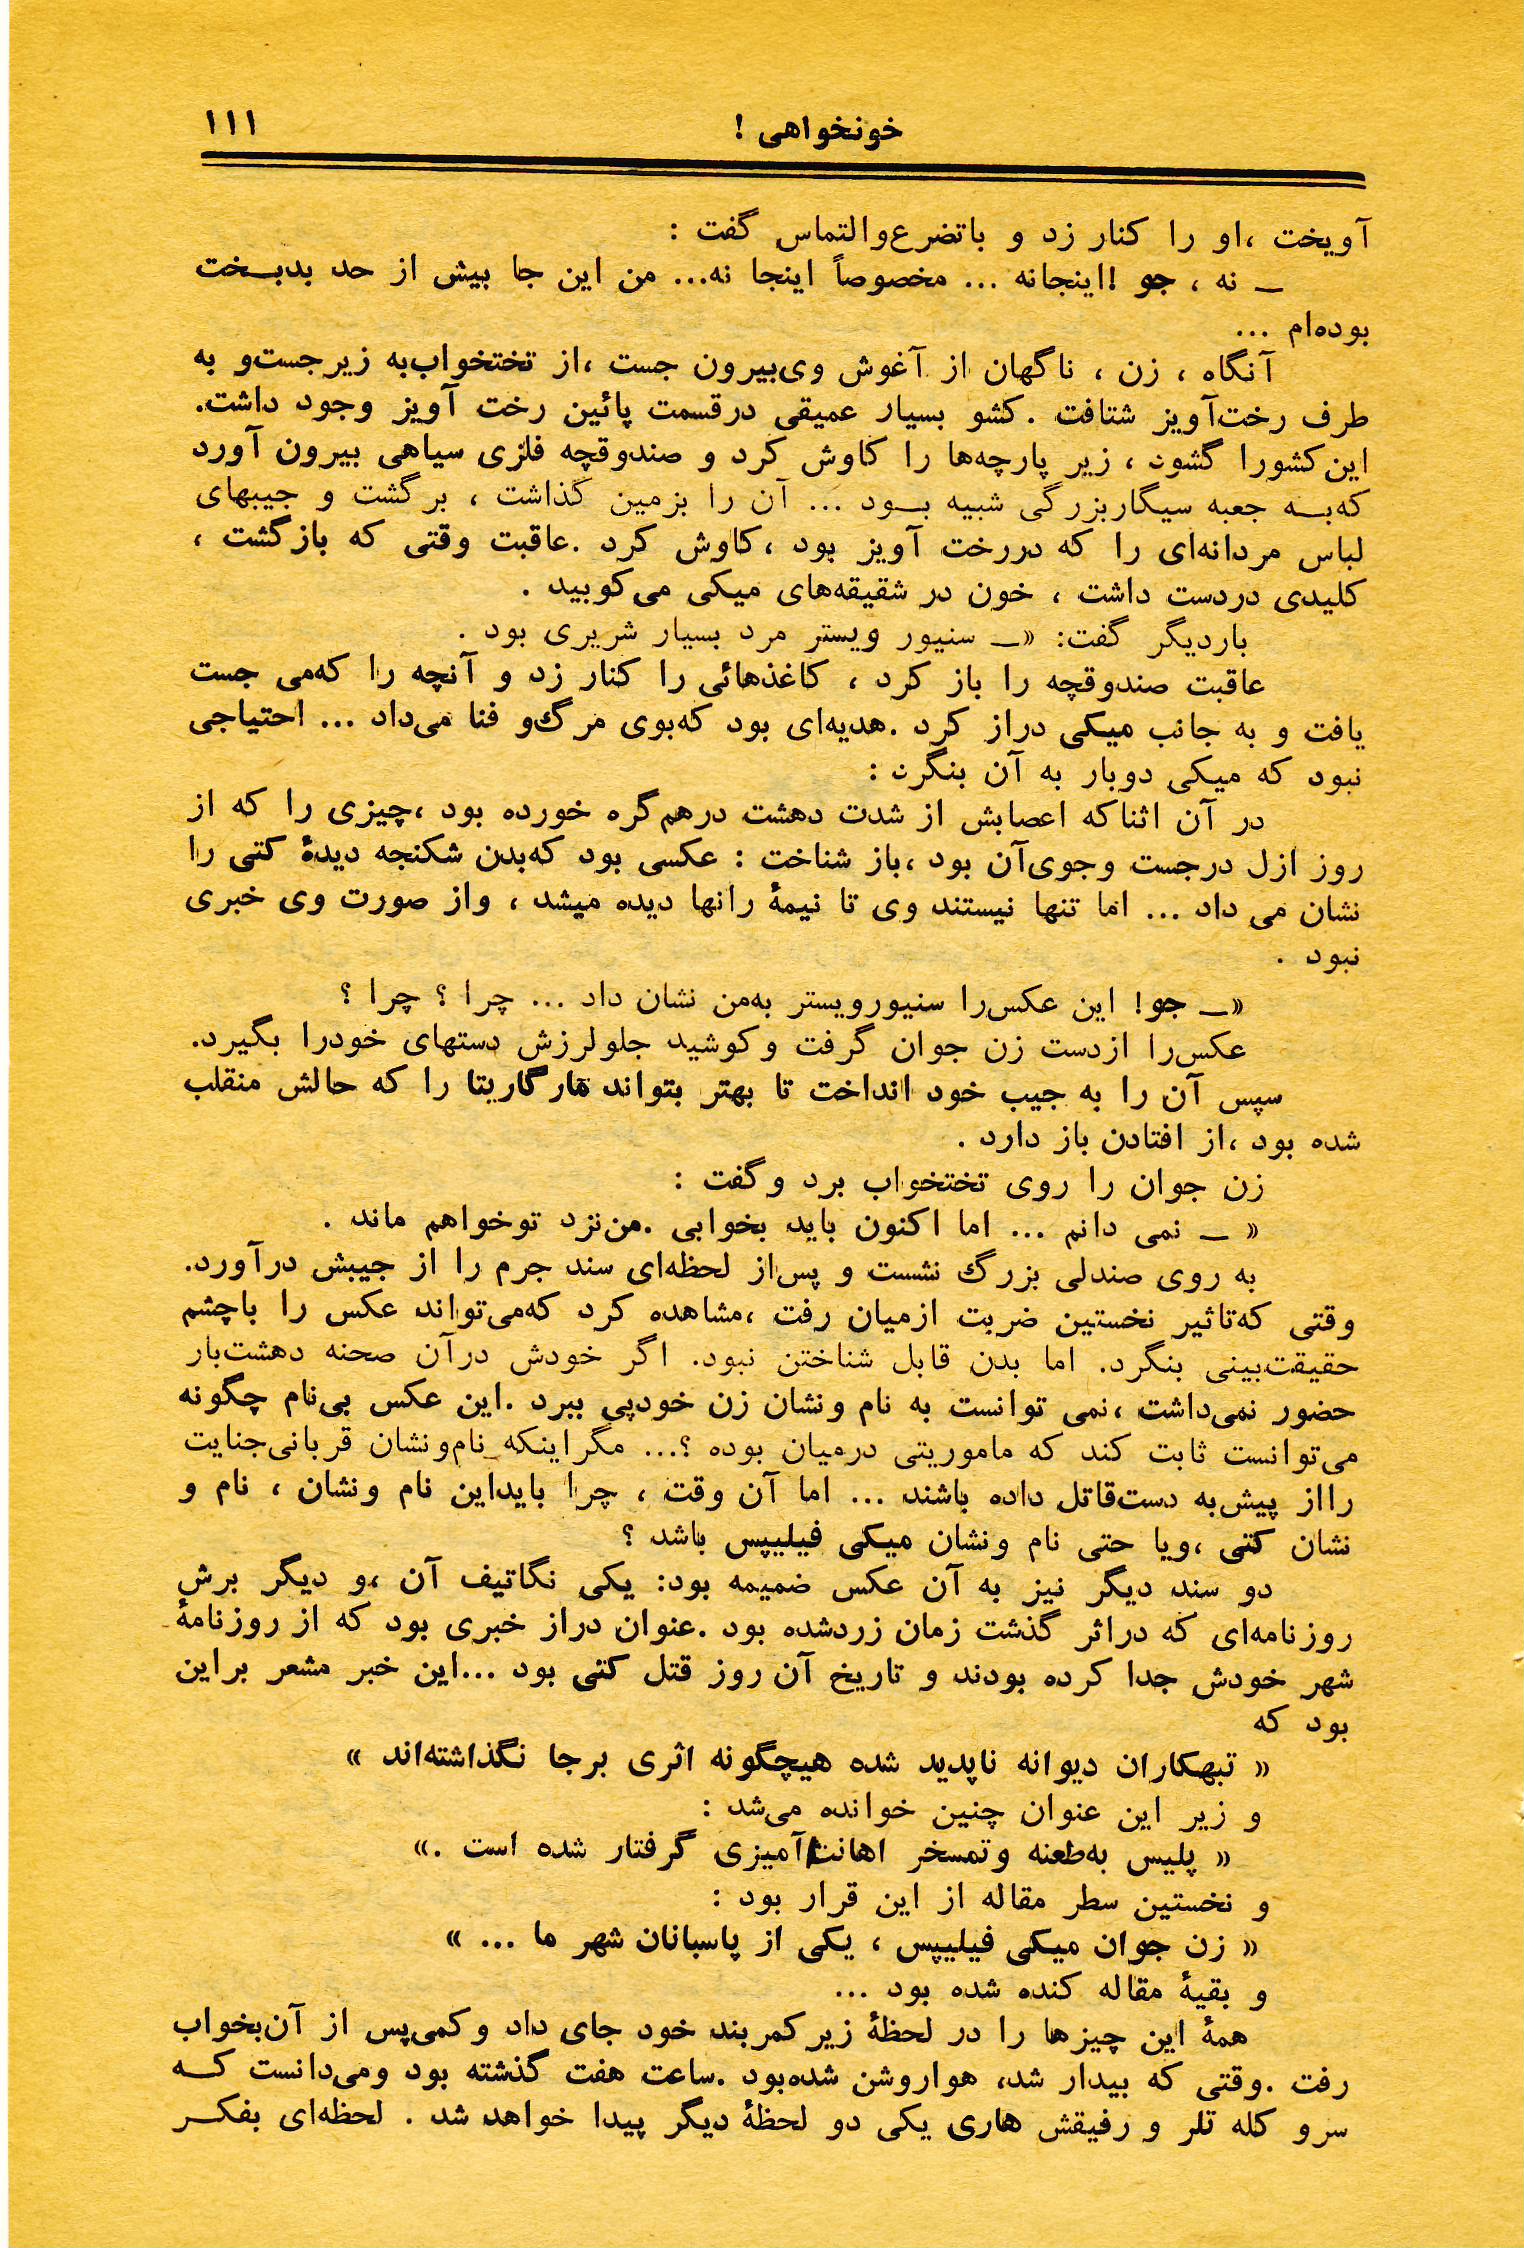 خونخواهی ! ۱۱۱
آویخت ،او را کنار زد و باتضرع‌والتماس گفت :
ـ نه ، جو !اینجانه ... مخصوصاً اینجا نه... من این جا بیش از حد بدبـخت
بوده‌ام ...
آنگاه ، زن ، ناگهان از آغوش وی‌بیرون جست ،از تختخواب‌به زیرجست‌و به
طرف رخت‌آویز شتافت .کشو بسیار عمیقی درقسمت پائین رخت آویز وجود داشت.
این‌کشورا گشود ، زیر پارچه‌ها را کاوش کرد و صندوقچه فلزی سیاهی بیرون آورد
که‌بـه جعبه سیگاربزرگی شبیه بـود ... آن را بزمین گذاشت ، برگشت و جیبهای
لباس مردانه‌ای را که دررخت آویز بود ،کاوش کرد .عاقبت وقتی که بازگشت ،
کلیدی دردست داشت ، خون در شقیقه‌های میکی می‌کوبید .
باردیگر گفت: «ـ سنیور ویستر مرد بسیار شریری بود .
عاقبت صندوقچه را باز کرد ، کاغذهائی را کنار زد و آنچه را که‌می جست
یافت و به جانب میکی دراز کرد .هدیه‌ای بود که‌بوی مرگ‌و فنا می‌داد ... احتیاجی
نبود که میکی دوبار به آن بنگرد :
در آن اثناکه اعصابش از شدت دهشت درهم‌گره خورده بود ،چیزی را که از
روز ازل درجست وجوی‌آن بود ،باز شناخت : عکسی بود که‌بدن شکنجه دیدهٔ کتی را
نشان می داد ... اما تنها نیستند وی تا نیمهٔ رانها دیده میشد ، واز صورت وی خبری
نبود .
«ـ جو! این عکس‌را سنیورویستر به‌من نشان داد ... چرا ؟ چرا ؟
عکس‌را ازدست زن جوان گرفت وکوشید جلولرزش دستهای خودرا بگیرد.
سپس آن را به جیب خود انداخت تا بهتر بتواند مارگاریتا را که حالش منقلب
شده بود ،از افتادن باز دارد .
زن جوان را روی تختخواب برد وگفت :
« ـ نمی دانم ... اما اکنون باید بخوابی .من‌نزد توخواهم ماند .
به روی صندلی بزرگ نشست و پس‌از لحظه‌ای سند جرم را از جیبش درآورد.
وقتی که‌تاثیر نخستین ضربت ازمیان رفت ،مشاهده کرد که‌می‌تواند عکس را باچشم
حقیقت‌بینی بنگرد. اما بدن قابل شناختن نبود. اگر خودش درآن صحنه دهشت‌بار
حضور نمی‌داشت ،نمی توانست به نام ونشان زن خودپی ببرد .این عکس بی‌نام چگونه
می‌توانست ثابت کند که ماموریتی درمیان بوده ؟... مگراینکه نام‌ونشان قربانی‌جنایت
رااز پیش‌به دست‌قاتل داده باشند ... اما آن وقت ، چرا بایداین نام ونشان ، نام و
نشان کتی ،ویا حتی نام ونشان میکی فیلیپس باشد ؟
دو سند دیگر نیز به آن عکس ضمیمه بود: یکی نگاتیف آن ،و دیگر برش
روزنامه‌ای که دراثر گذشت زمان زردشده بود .عنوان دراز خبری بود که از روزنامهٔ
شهر خودش جدا کرده بودند و تاریخ آن روز قتل کتی بود ...این خبر مشعر براین
بود که
« تبهکاران دیوانه ناپدید شده هیچگونه اثری برجا نگذاشته‌اند »
و زیر این عنوان چنین خوانده می‌شد :
« پلیس به‌طعنه وتمسخر اهانت‌آمیزی گرفتار شده است .»
و نخستین سطر مقاله از این قرار بود :
« زن جوان میکی فیلیپس ، یکی از پاسبانان شهر ما ... »
و بقیهٔ مقاله کنده شده بود ...
همهٔ این چیزها را در لحظهٔ زیرکمربند خود جای داد وکمی‌پس از آن‌بخواب
رفت .وقتی که بیدار شد، هواروشن شده‌بود .ساعت هفت گذشته بود ومی‌دانست کـه
سرو کله تلر و رفیقش هاری یکی دو لحظهٔ دیگر پیدا خواهد شد . لحظه‌ای بفکـر